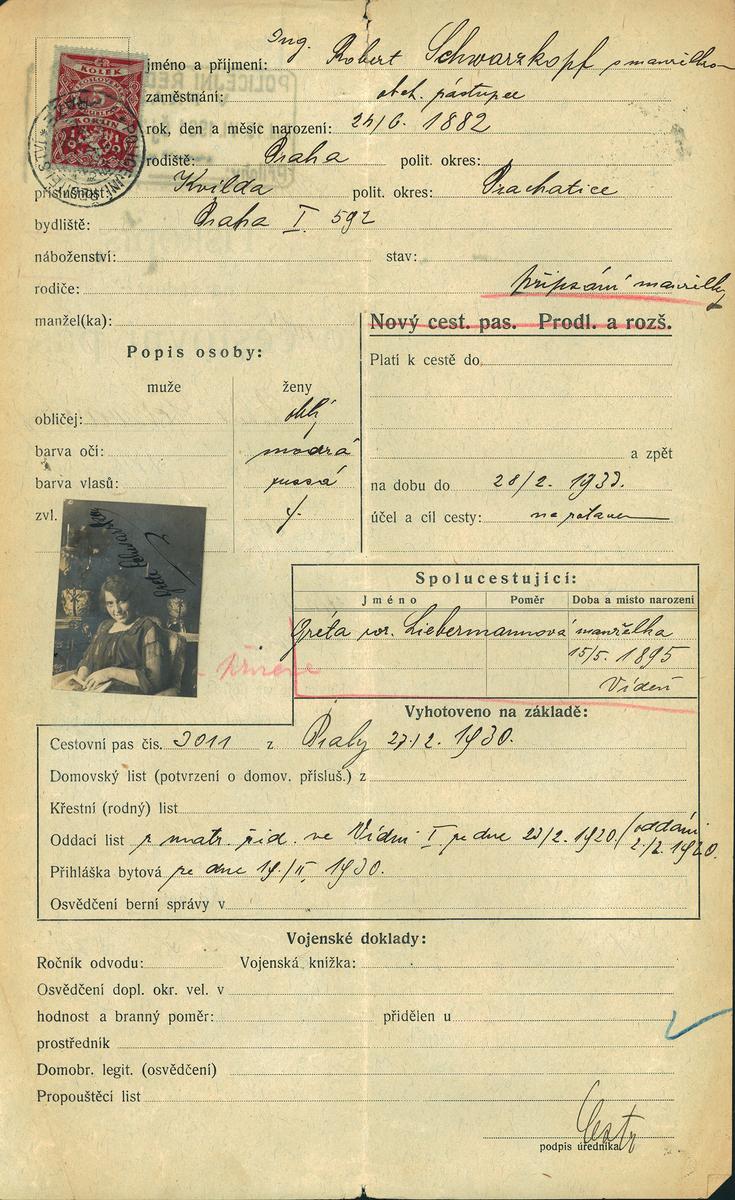 KOLEK
5
KORUN
jméno a příjmení: Ing. Robert Schwarzkopf s manželkou
zaměstnání: obch. zástupce
rok, den a měsíc narození: 24/6. 1882
rodiště: Praha polit. okres:
příslušnost: Kvilda polit. okres: Prachatice
bydliště: Praha I. 592
náboženství: stav:
rodiče: připsání manželky
manžel(ka):
Nový cest. pas. Prodl. a rozš.
Popis osoby:
muže ženy
obličej: oblý
barva očí: modrá
barva vlasů: russá
zvl.
Platí k cestě do
a zpět
na dobu do 28/2. 1933.
účel a cíl cesty:
Spolucestující:
Jméno Poměr Doba a místo narození
Gréta roz. Liebermannová manželka
15/5. 1895
Vídeň
Vyhotoveno na základě:
Cestovní pas čis. 3011 z Prahy 27/2. 1930.
Domovský list (potvrzení o domov. přísluš.) z
Křestní (rodný) list
Oddací list z matr. žid. ve Vídni I ze dne 23/2. 1920 (oddáni
2./2. 1920.
Přihláška bytová ze dne 19./II. 1930.
Osvědčení berní správy v
Vojenské doklady:
Ročník odvodu: Vojenská knížka:
Osvědčení dopl. okr. vel. v
hodnost a branný poměr: přidělen u
prostředník
Domobr. legit. (osvědčení)
Propouštěcí list
podpis úředníka